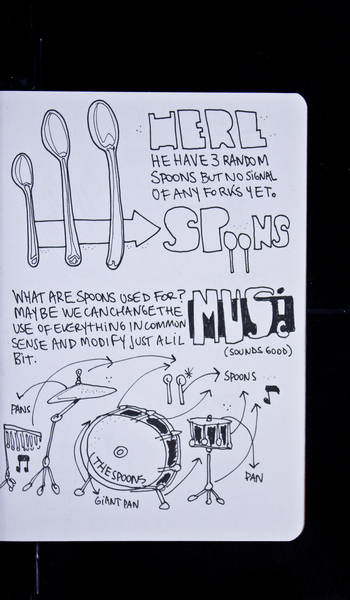 HERE
HE HAVE 3 RANDOM
SPOONS BUT NO SIGNAL
OF ANY FORKS YET.
SPOONS
WHAT ARE SPOONS USED FOR?
MAYBE WE CAN CHANGE THE
USE OF EVERYTHING IN COMMON
SENSE AND MODIFY JUST A LIL
BIT.
MUSi
(SOUNDS GOOD)
SPOONS
PANS
THE SPOONS
GiANT PAN
PAN